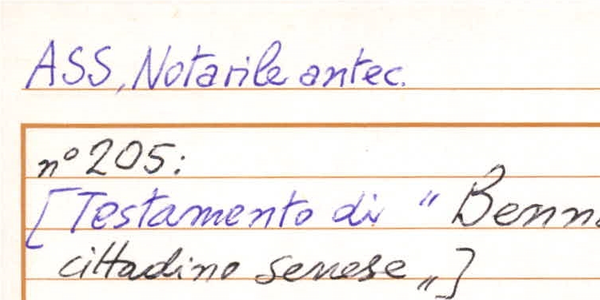 ASS, Notarile antec.
nº 205:
[Testamento di "
cittadino senese„]